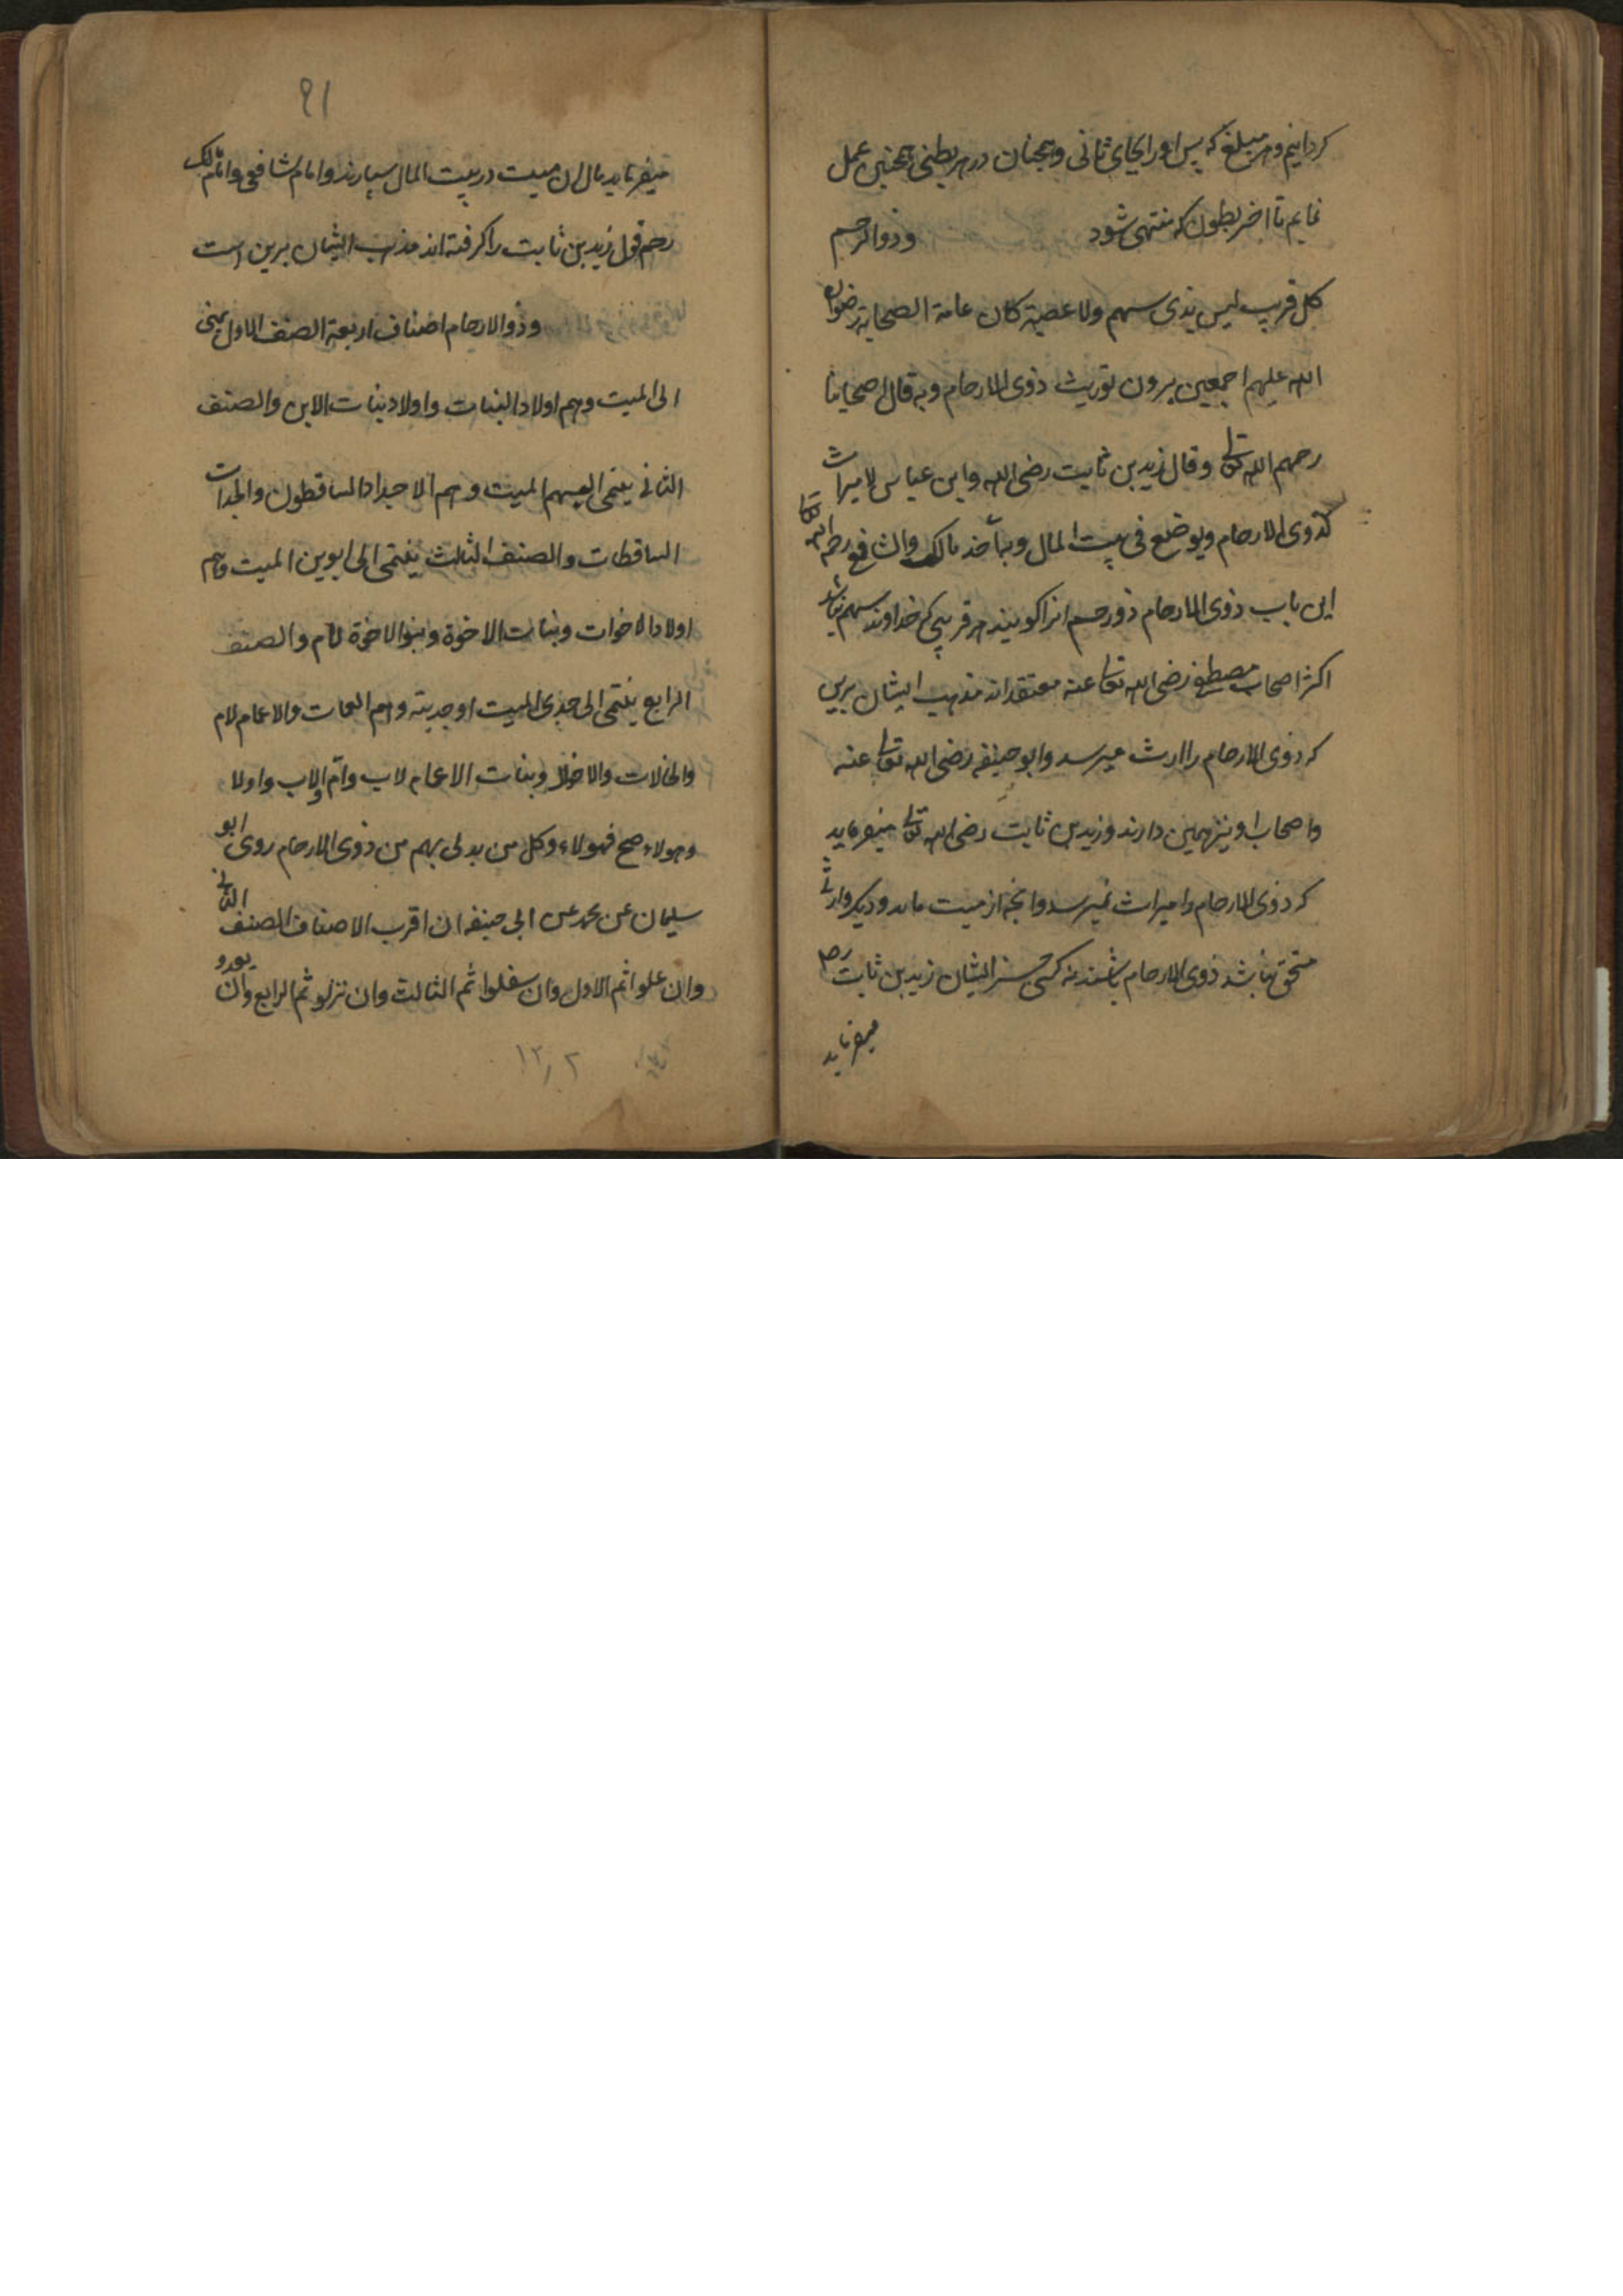 کردانیم و هر مبلغ که پس او را بجای ثانی و همچنان در هر بطنی همچنین عمل
نمایم تا اخر بطون که منتهی شود وذو الرحم
کل قریب لیس بذی سهم ولا عصبة کان عامة الصحابة رضوان
الله علیهم اجمعین یرون توریث ذوی الارحام وبه قال اصحابنا
رحمهم الله تعالی وقال زید بن ثابت رضی الله وابن عباس لا میراث
لذوی الارحام ویوضع فی بیت المال وبه اخذ مالک والشافع رحمه الله تعالی
این باب ذوی الارحام ذو رحم انرا کویند هر قریبی که خداوند سهم نباشد
اکثر اصحاب مصطفی رضی الله تعالی عنه معتقدانه مذهب ایشان برین
که ذوی الارحام را ارث میرسد وابو حنیفه رضی الله تعالی عنه
واصحاب او نیز همین دارند وزید بن ثابت رضی الله تعالی میفرماید
که ذوی الارحام را میراث نمیرسد وانچه از میت ماند ودیکر وارثی
مستحق نباشد ذوی الارحام باشند نه کسی جز ایشان زید بن ثابت رح
میفرماید
۹۱
میفرماید مال ان میت در بیت المال سپارند وامام شافعی وامام مالک
رحم قول زید بن ثابت را کرفته اند مذهب ایشان برین است
وذو الارحام اصناف اربعة الصنف الاول ینتمی
الی المیت وهم اولاد البنات واولاد بنات الابن والصنف
الثانی ینتمی الیهم المیت وهم الاجداد الساقطون والجدات
الساقطات والصنف الثالث ینتمی الی ابوین المیت وهم
اولاد الاخوات وبنات الاخوة وبنو الاخوة لام والصنف
الرابع ینتمی الی جدی المیت او جدیته وهم العمات والاعمام لام
والخالات والاخوال وبنات الاعمام لاب وام او لاب واولا
وهولاء صح فهولاء وکل من یدلی بهم من ذوی الارحام روی ابو
سلیمان عن محمد عن ابی حنیفه ان اقرب الاصناف الصنف الثانی
وان علوا ثم الاول وان سفلوا ثم الثالث وان نزلو ثم الرابع وان
۱۲٫۲